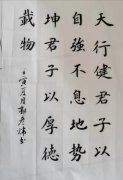 天行健君子以
自強不息地勢
坤君子以厚德
載物
壬寅夏月